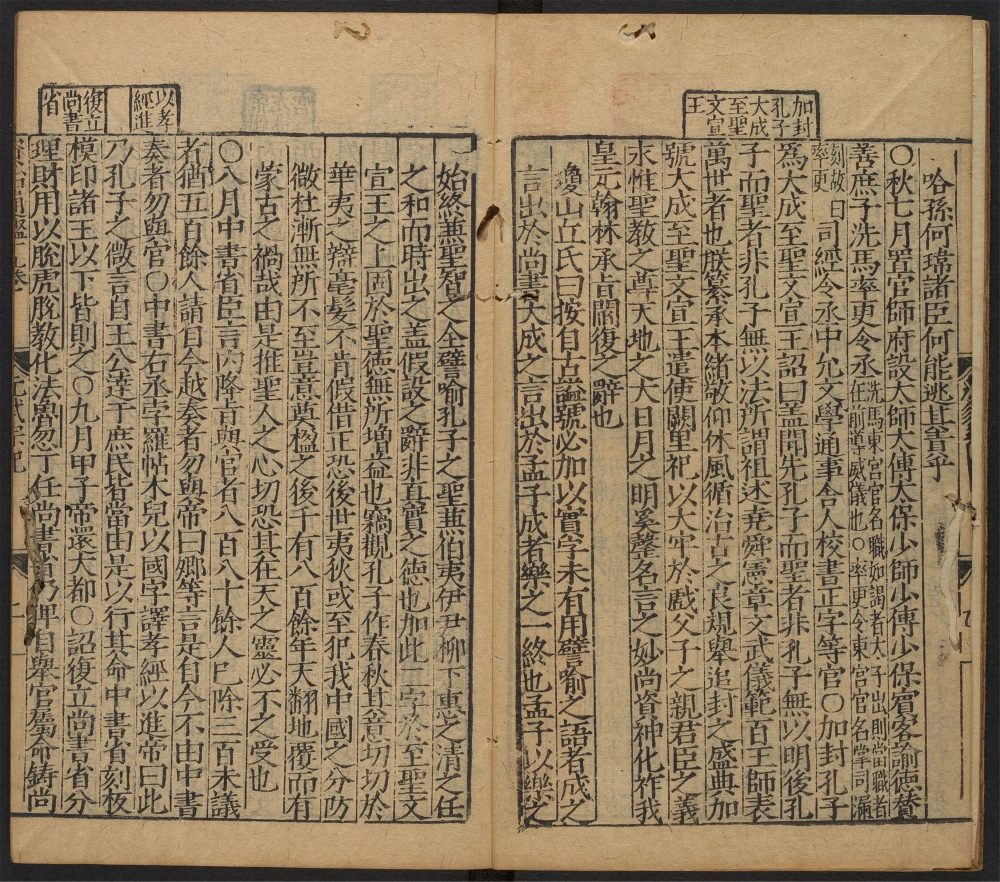 加封
孔子
大成
至聖
文宣
王
哈孫何瑋諸臣何能逃其責乎
○秋七月置官師府設太師太傅太保少師少傅少保賓客諭德贊
善庶子洗馬率更令丞洗馬東宮官名職如謁者太子出則當職者在前導威儀也○率更令東宮官名掌司漏
刻故曰率更司經令丞中允文學通事舍人校書正字等官○加封孔子
爲大成至聖文宣王詔曰盖聞先孔子而聖者非孔子無以明後孔
子而聖者非孔子無以法所謂祖述堯舜憲章文武儀範百王師表
萬世者也朕纂承丕緒敬仰休風循治古之良規舉追封之盛典加
號大成至聖文宣王遣使闕里祀以大牢於戲父子之親君臣之義
永惟聖教之尊天地之大日月之明奚罄名言之妙尚資神化祚我
皇元翰林承旨閻復之辭也
瓊山丘氏曰按自古諡號必加以實字未有用譬喻之語者成之
言出於尚書大成之言出於孟子成者樂之一終也孟子以樂之
以孝
經進
復立
尚書
省
始終兼聖智之全譬喻孔子之聖兼伯夷伊尹柳下惠之清之任
之和而時出之盖假設之辭非真實之德也加此二字於至聖文
宣王之上固於聖德無所增益也竊觀孔子作春秋其意切切於
華夷之辯毫髪不肯假借正恐後世夷狄或至犯我中國之分防
微杜漸無所不至豈意奠楹之後千有八百餘年天翻地覆而有
蒙古之禍哉由是推聖人之心切恐其在天之靈必不之受也
○八月中書省臣言内降旨與官者八百八十餘人巳除三百未議
者猶五百餘人請曰今越奏者勿與帝曰卿等言是自今不由中書
奏者勿與官○中書右丞孛羅帖木兒以國字譯孝經以進帝曰此
乃孔子之微言自王公達于庶民皆當由是以行其命中書省刻板
模印諸王以下皆則之○九月甲子帝還大都○詔復立尚書省分
理財用以脫虎脫教化法魯忽丁任尚書省乃俾自舉官屬命鑄尚
元武宗紀